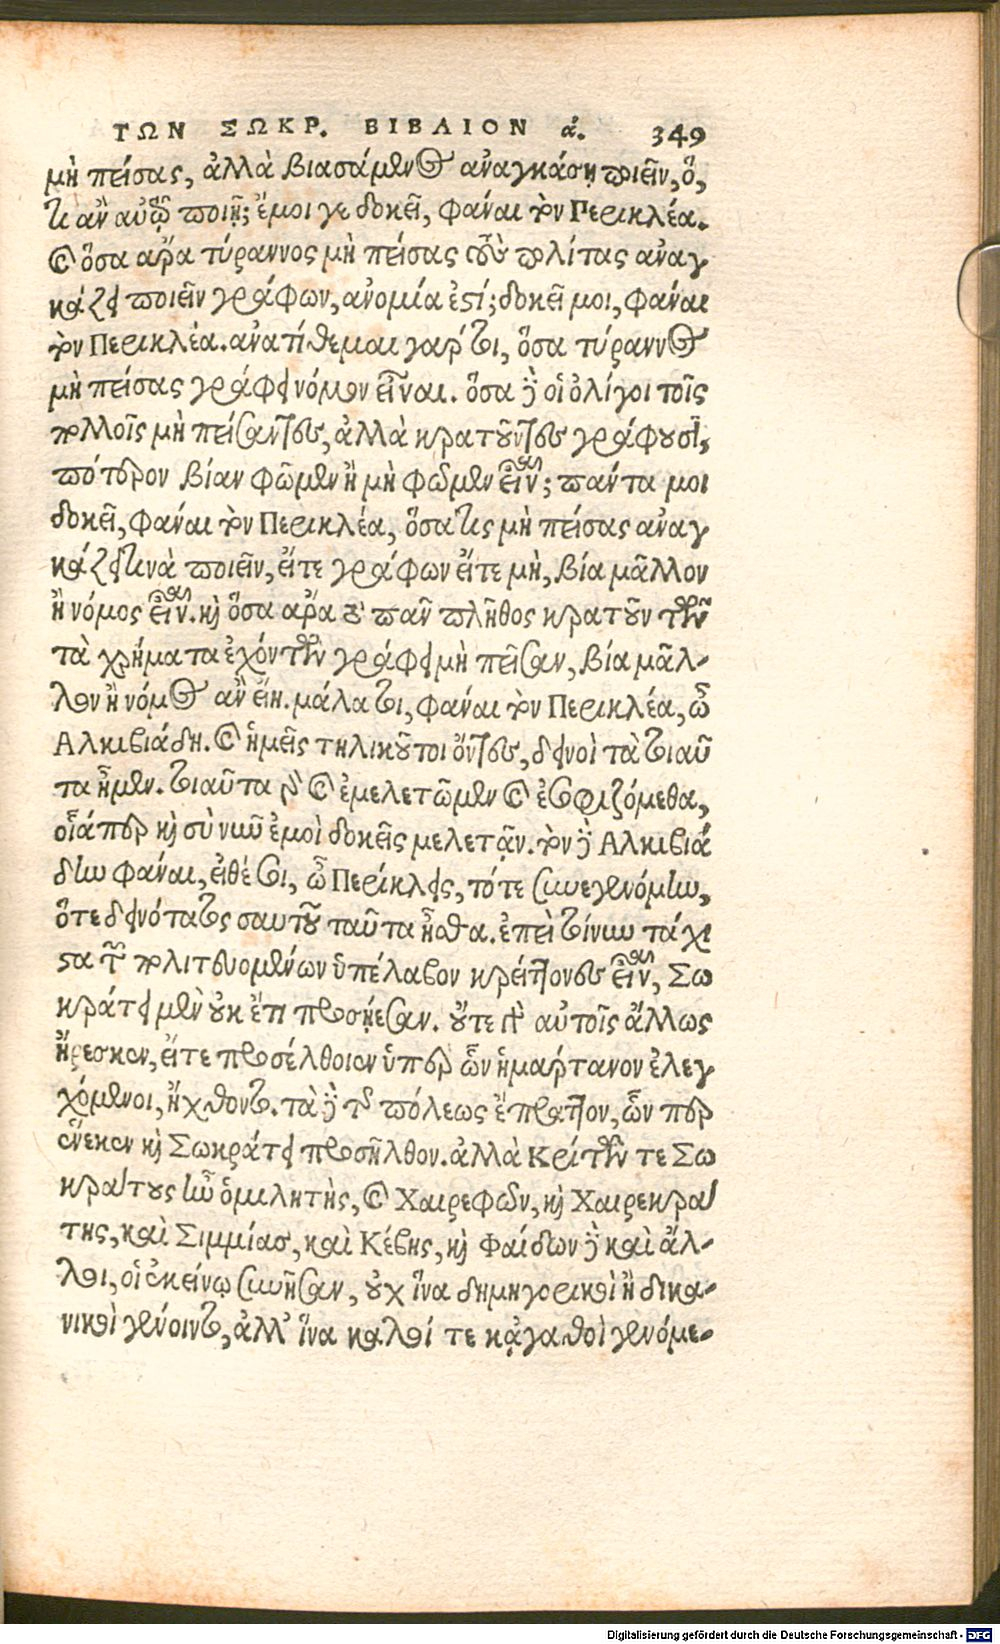 ΤΩΝ ΣΩΚΡ. ΒΙΒΛΙΟΝ α. 349
μὴ πείσας, ἀλλὰ βιασάμενος ἀναγκάσῃ ποιεῖν, ὅ,
τι ἂν αὐτῷ ποιῇ; ἔμοι γε δοκεῖ, φάναι τὸν Περικλέα.
καὶ ὅσα ἄρα τύραννος μὴ πείσας τοὺς πολίτας ἀναγ
κάζει ποιεῖν γράφων, ἀνομία ἐστί; δοκεῖ μοι, φάναι
τὸν Περικλέα. ἀνατίθεμαι γὰρ τοι, ὅσα τύραννος
μὴ πείσας γράφει νόμον εἶναι. ὅσα δὲ οἱ ὀλίγοι τοῖς
πολλοῖς μὴ πείσαντες, ἀλλὰ κρατοῦντες γράφουσι,
πότερον βίαν φῶμεν ἢ μὴ φῶμεν εἶναι; πάντα μοι
δοκεῖ, φάναι τὸν Περικλέα, ὅσα τις μὴ πείσας ἀναγ
κάζει τινὰ ποιεῖν, εἴτε γράφων εἴτε μὴ, βία μᾶλλον
ἢ νόμος εἶναι. καὶ ὅσα ἄρα τὸ πᾶν πλῆθος κρατοῦν τῶν
τὰ χρήματα ἐχόντων γράφει μὴ πεῖσαν, βία μᾶλ-
λον ἢ νόμος ἂν εἴη. μάλα τοι, φάναι τὸν Περικλέα, ὦ
Ἀλκιβιάδη. καὶ ἡμεῖς τηλικοῦτοι ὄντες, δεινοὶ τὰ τοιαῦ
τα ἦμεν. τοιαῦτα γὰρ καὶ ἐμελετῶμεν καὶ ἐσοφιζόμεθα,
οἷάπερ καὶ σὺ νῦν ἐμοὶ δοκεῖς μελετᾷν. τὸν δὲ Ἀλκιβιά
δην φάναι, εἰθέ σοι, ὦ Περίκλεις, τότε συνεγενόμην,
ὅτε δεινότατος σαυτοῦ ταῦτα ἦσθα. ἐπεὶ τοίνυν τάχι
στα τῶν πολιτευομένων ὑπέλαβον κρείττονες εἶναι, Σω
κράτει μὲν οὐκ ἔτι προσῄεσαν. οὔτε γὰρ αὐτοῖς ἄλλως
ἤρεσκεν, εἴτε προσέλθοιεν ὑπὲρ ὧν ἡμάρτανον ἐλεγ
χόμενοι, ἤχθοντο. τὰ δὲ τῆς πόλεως ἔπραττον, ὧν περ
ἕνεκεν καὶ Σωκράτει προσῆλθον. ἀλλὰ Κρίτων τε Σω
κράτους ἦν ὁμιλητὴς, καὶ Χαιρεφῶν, καὶ Χαιρεκρά
της, καὶ Σιμμίας, καὶ Κέβης, καὶ Φαίδων δὲ καὶ ἄλ-
λοι, οἱ ἐκείνῳ συνῆσαν, οὐχ ἵνα δημηγορικοὶ ἢ δικα-
νικοὶ γένοιντο, ἀλλ' ἵνα καλοί τε κᾀγαθοὶ γενόμε-
Digitalisierung gefördert durch die Deutsche Forschungsgemeinschaft - DFG